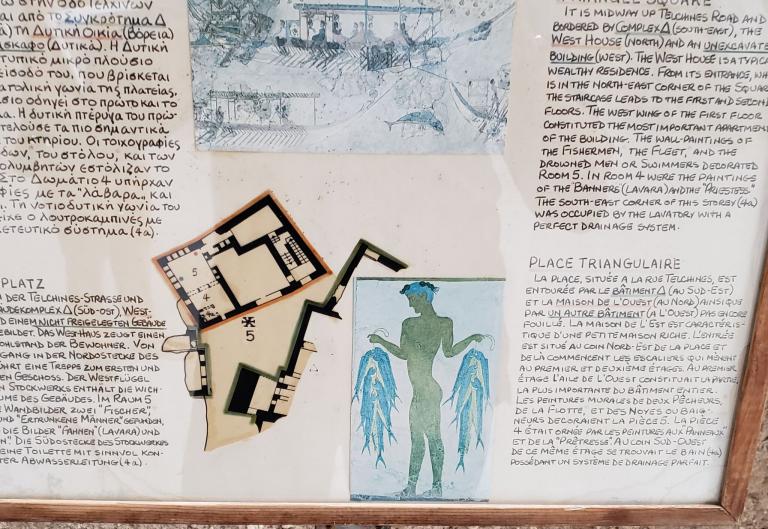 στην οδό Τελχίνων
αι από το Συγκρότημα Δ
) τη Δυτική Οικία (βόρεια)
σκαφο (δυτικά). Η Δυτική
τυπικό μικρό πλούσιο
είσοδό του, που βρίσκεται
ατολική γωνία της πλατείας,
σιο οδηγεί στο πρώτο και το
α. Η δυτική πτέρυγα του πρώ-
τελούσε τα πιο σημαντικά
του κτηρίου. Οι τοιχογραφίες
δων, του στόλου, και των
ολυμβητών εστόλιζαν το
Στο Δωμάτιο 4 υπήρχαν
φίες με τα "λάβαρα,, και
ι. Τη νοτιοδυτική γωνία του
είχε ο λουτροκαμπινές με
ετευτικό σύστημα (4α).
PLATZ
N DER TELCHINES-STRASSE UND
UDEKOMPLEX Δ (SÜD-OST), WEST-
D EINEM NICHT FREIGELEGTEN GEBÄUDE
EBILDET. DAS WESTHAUS ZEUGT EINEN
OHLSTAND DER BEWOHNER. VON
GANG IN DER NORDOSTECKE DES
ÜHRT EINE TREPPE ZUM ERSTEN UND
EN GESCHOSS. DER WESTFLÜGEL
N STOCKWERKS ENTHÄLT DIE WICH-
UME DES GEBÄUDES. IM RAUM 5
E WANDBILDER ZWEI "FISCHER",
UND "ERTRUNKENE MÄNNER" GEFUNDEN,
DIE BILDER "FAHNEN" (LAVARA) UND
N" DIE SÜDOSTECKE DES STOCKWERKES
EINE TOILETTE MIT SINNVOL KON-
TER ABWASSERLEITUNG (4a).
5
4
5
TRIANGLE SQUARE
IT IS MIDWAY UP TELCHINES ROAD AND
BORDERED BY COMPLEX Δ (SOUTH-EAST), THE
WEST HOUSE (NORTH) AND AN UNEXCAVATED
BUILDING (WEST). THE WEST HOUSE IS A TYPICA
WEALTHY RESIDENCE. FROM ITS ENTRANCE, WH
IS IN THE NORTH-EAST CORNER OF THE SQUAR
THE STAIRCASE LEADS TO THE FIRST AND SECOND
FLOORS. THE WEST WING OF THE FIRST FLOOR
CONSTITUTED THE MOST IMPORTANT APARTMEN
OF THE BUILDING. THE WALL-PAINTINGS OF
THE FISHERMEN, THE FLEET, AND THE
DROWNED MEN OR SWIMMERS DECORATED
ROOM 5. IN ROOM 4 WERE THE PAINTINGS
OF THE BANNERS (LAVARA) AND THE "PRIESTESS."
THE SOUTH-EAST CORNER OF THIS STOREY (4a)
WAS OCCUPIED BY THE LAVATORY WITH A
PERFECT DRAINAGE SYSTEM.
PLACE TRIANGULAIRE
LA PLACE, SITUÉE A LA RUE TELCHINES, EST
ENTOURÉE PAR LE BÂTIMENT Δ (AU SUD-EST)
ET LA MAISON DE L'OUEST (AU NORD) AINSI QUE
PAR UN AUTRE BÂTIMENT (A L'OUEST) PAS ENCORE
FOUILLÉ. LA MAISON DE L'EST EST CARACTÉRIS-
TIQUE D'UNE PETITE MAISON RICHE. L'ENTRÉE
EST SITUÉ AU COIN NORD-EST DE LA PLACE ET
DE LÀ COMMENCENT LES ESCALIERS QUI MÈNENT
AU PREMIER ET DEUXIÈME ÉTAGES. AU PREMIER
ÉTAGE L'AILE DE L'OUEST CONSTITUAIT LA PARTIE
LA PLUS IMPORTANTE DU BÂTIMENT ENTIER.
LES PEINTURES MURALES DE DEUX PÊCHEURS,
DE LA FLOTTE, ET DES NOYÉS OU BAIG-
NEURS DECORAIENT LA PIÈCE 5. LA PIÈCE
4 ÉTAIT ORNÉE PAR LES PEINTURES AUX PANNEAUX
ET DE LA "PRÊTRESSE". AU COIN SUD-OUEST
DE CE MÊME ÉTAGE SE TROUVAIT LE BAIN (4a)
POSSÉDANT UN SYSTÈME DE DRAINAGE PARFAIT.